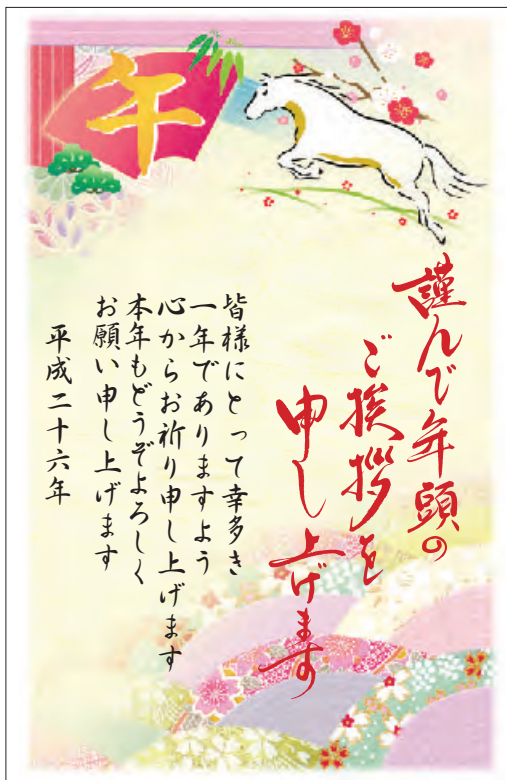 午
謹んで年頭の
ご挨拶を
申し上げます
皆様にとって幸多き
一年でありますよう
心からお祈り申し上げます
本年もどうぞよろしく
お願い申し上げます
平成二十六年